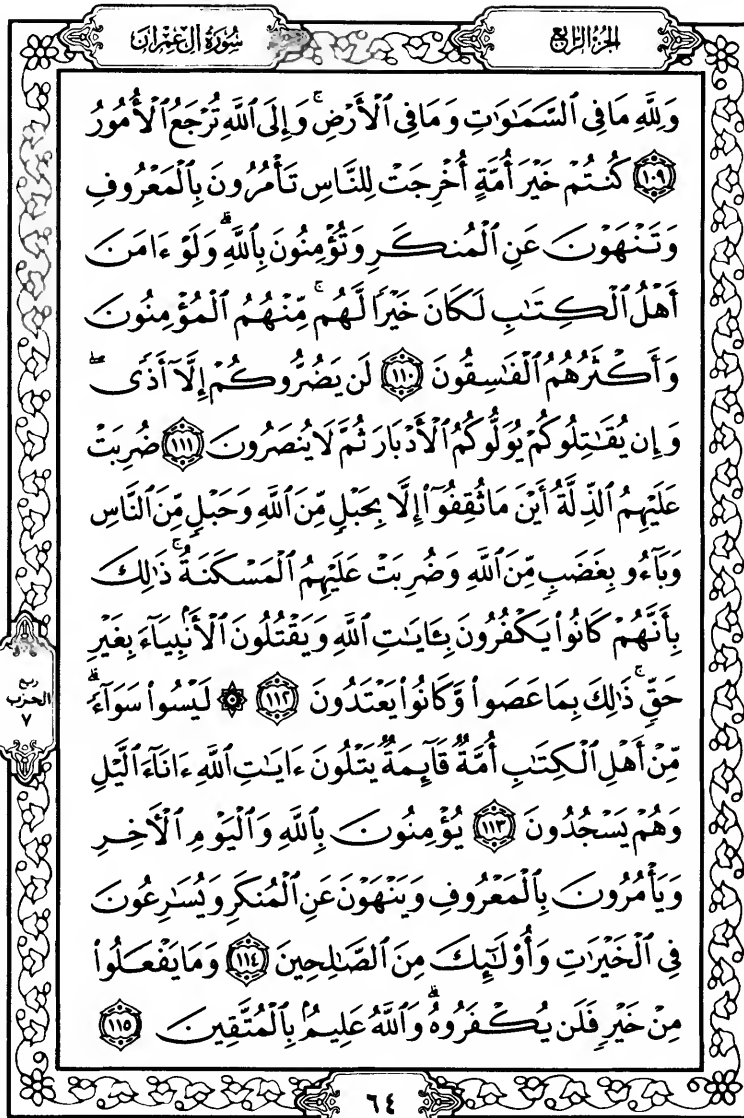 الجزء الرابع
سورة آل عمران
وَلِلَّهِ مَا فِي ٱلسَّمَٰوَٰتِ وَمَا فِي ٱلْأَرْضِ ۚ وَإِلَى ٱللَّهِ تُرْجَعُ ٱلْأُمُورُ
١٠٩ كُنتُمْ خَيْرَ أُمَّةٍ أُخْرِجَتْ لِلنَّاسِ تَأْمُرُونَ بِٱلْمَعْرُوفِ
وَتَنْهَوْنَ عَنِ ٱلْمُنكَرِ وَتُؤْمِنُونَ بِٱللَّهِ ۗ وَلَوْ ءَامَنَ
أَهْلُ ٱلْكِتَٰبِ لَكَانَ خَيْرًا لَّهُم ۚ مِّنْهُمُ ٱلْمُؤْمِنُونَ
وَأَكْثَرُهُمُ ٱلْفَٰسِقُونَ ١١٠ لَن يَضُرُّوكُمْ إِلَّآ أَذًى ۖ
وَإِن يُقَٰتِلُوكُمْ يُوَلُّوكُمُ ٱلْأَدْبَارَ ثُمَّ لَا يُنصَرُونَ ١١١ ضُرِبَتْ
عَلَيْهِمُ ٱلذِّلَّةُ أَيْنَ مَا ثُقِفُوٓا۟ إِلَّا بِحَبْلٍ مِّنَ ٱللَّهِ وَحَبْلٍ مِّنَ ٱلنَّاسِ
وَبَآءُو بِغَضَبٍ مِّنَ ٱللَّهِ وَضُرِبَتْ عَلَيْهِمُ ٱلْمَسْكَنَةُ ۚ ذَٰلِكَ
بِأَنَّهُمْ كَانُوا۟ يَكْفُرُونَ بِـَٔايَٰتِ ٱللَّهِ وَيَقْتُلُونَ ٱلْأَنۢبِيَآءَ بِغَيْرِ
حَقٍّ ۚ ذَٰلِكَ بِمَا عَصَوا۟ وَّكَانُوا۟ يَعْتَدُونَ ١١٢ ۞ لَيْسُوا۟ سَوَآءً ۗ
مِّنْ أَهْلِ ٱلْكِتَٰبِ أُمَّةٌ قَآئِمَةٌ يَتْلُونَ ءَايَٰتِ ٱللَّهِ ءَانَآءَ ٱلَّيْلِ
وَهُمْ يَسْجُدُونَ ١١٣ يُؤْمِنُونَ بِٱللَّهِ وَٱلْيَوْمِ ٱلْءَاخِرِ
وَيَأْمُرُونَ بِٱلْمَعْرُوفِ وَيَنْهَوْنَ عَنِ ٱلْمُنكَرِ وَيُسَٰرِعُونَ
فِي ٱلْخَيْرَٰتِ وَأُو۟لَٰٓئِكَ مِنَ ٱلصَّٰلِحِينَ ١١٤ وَمَا يَفْعَلُوا۟
مِنْ خَيْرٍ فَلَن يُكْفَرُوهُ ۗ وَٱللَّهُ عَلِيمٌۢ بِٱلْمُتَّقِينَ ١١٥
ربع
الحزب
٧
٦٤